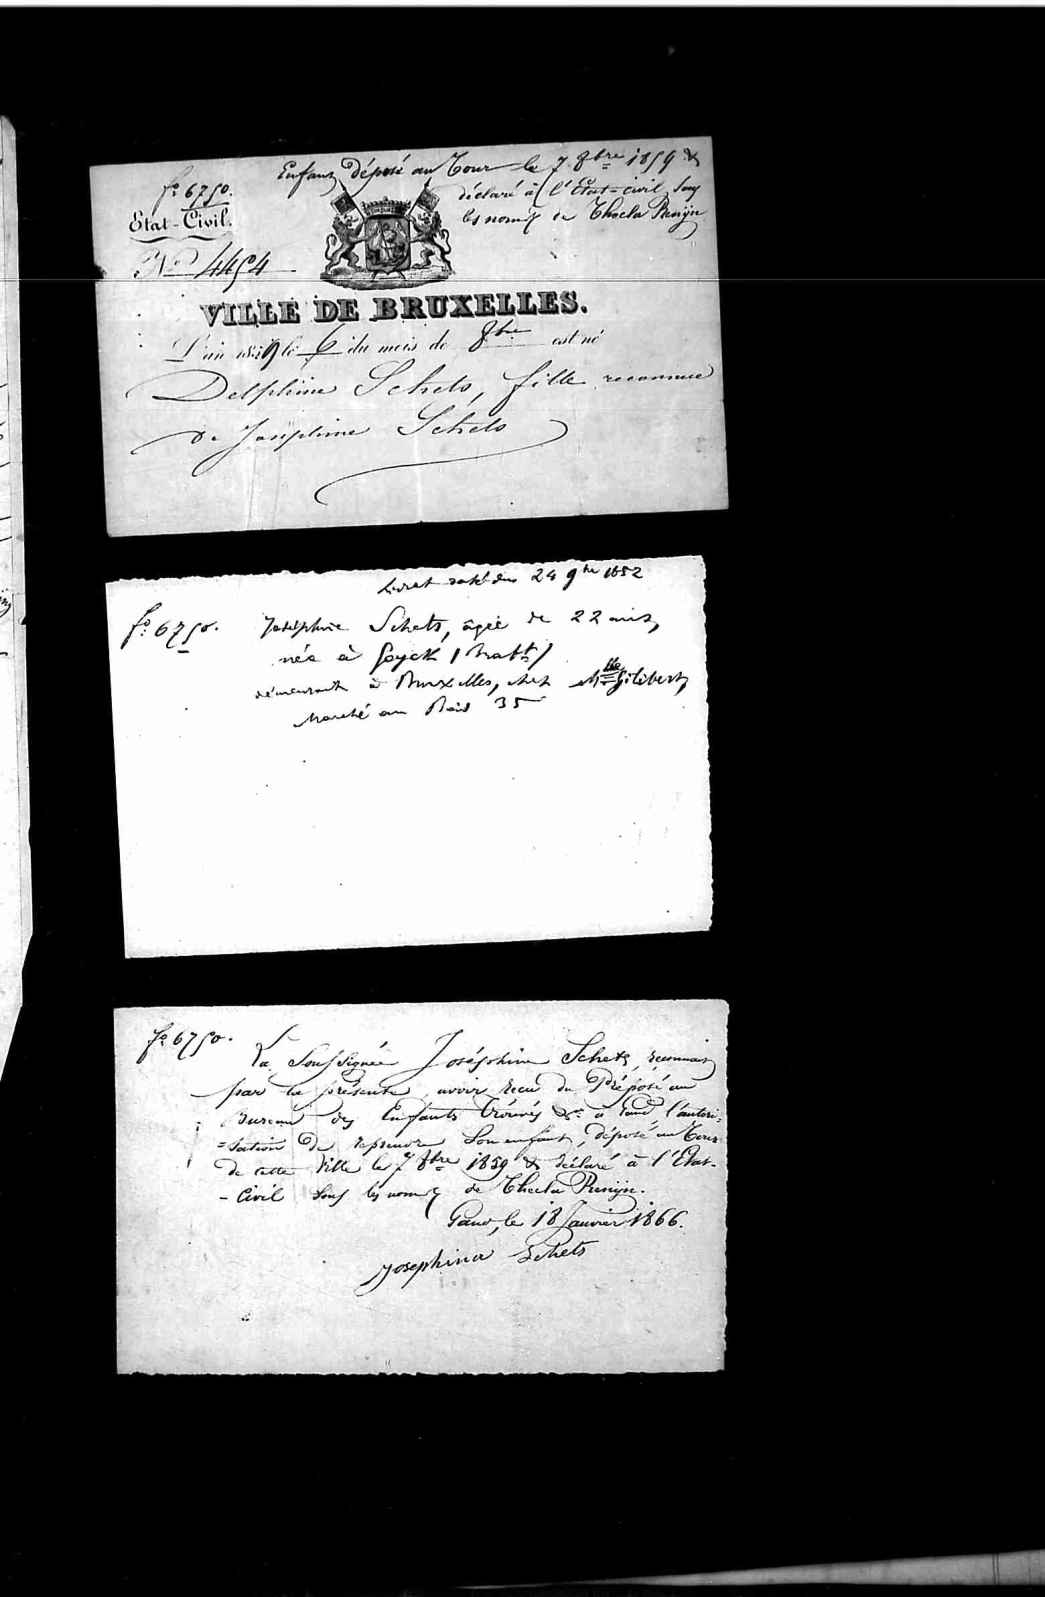 Enfant déposé au Tour le 7 8bre 1859 &
déclaré à l'Etat-civil sous
les noms de Thecla Rersijn
fo 6750.
Etat-Civil.
No 4454
VILLE DE BRUXELLES.
L'an 1859 le 6 du mois de 8bre est né
Delphine Schets, fille reconnue
de Joséphine Schets
Livret daté du 24 9bre 1852
fo: 6750. Joséphine Schets, âgée de 22 ans,
née à Goyck (Brabt)
demeurant à Bruxelles, chez Mlle Gilibert,
Marché au Bois 35
fo 6750.
La Soussignée Joséphine Schets, reconnait
par la présente, avoir reçu du Préposé au
Bureau des Enfants Trouvés &a à Gand l'autori-
=sation de reprendre Son enfant, déposé au Tour
de cette Ville le 7 8bre 1859 & déclaré à l'Etat-
-Civil Sous les noms de Thecla Rersijn.
Gand, le 18 Janvier 1866.
Josephina Schets